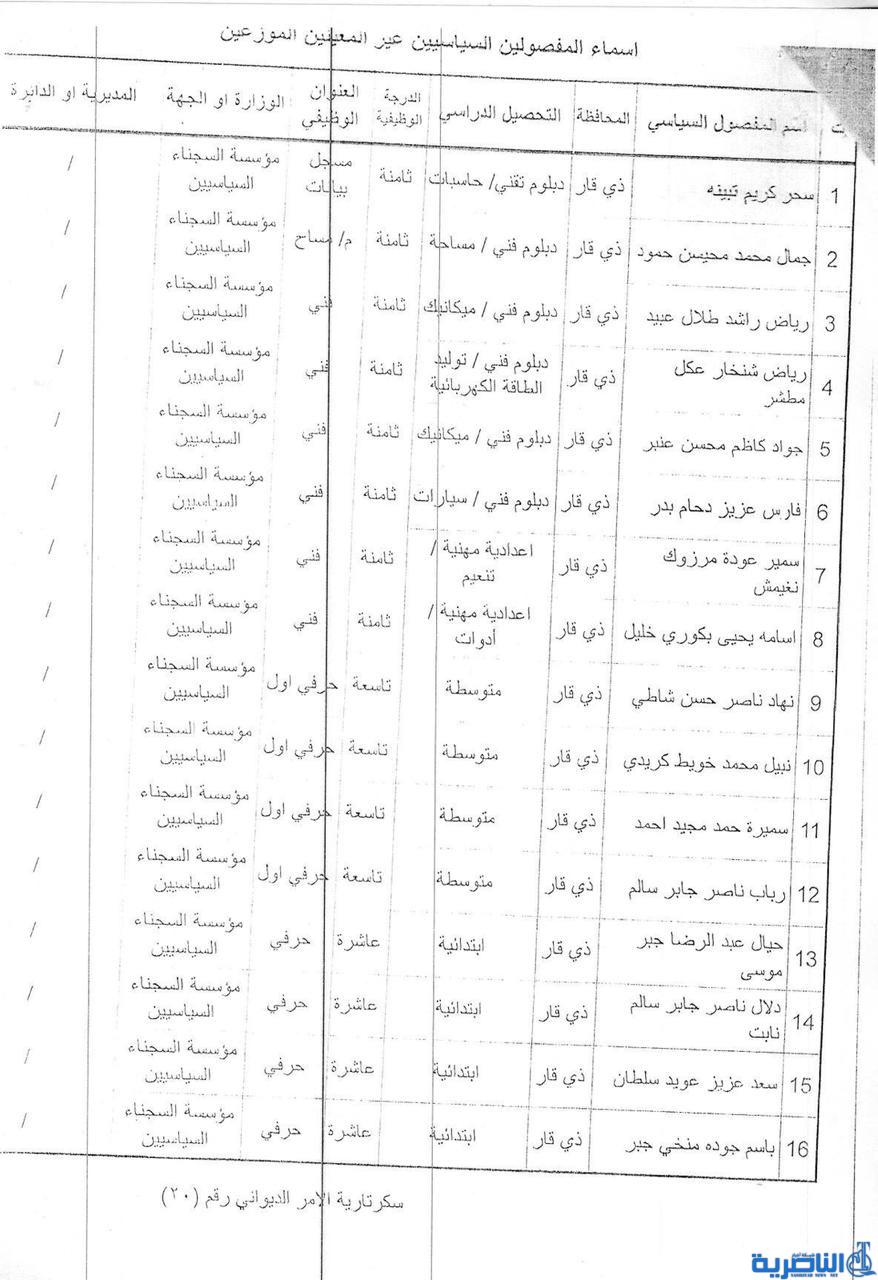 اسماء المفصولين السياسيين غير المعينين الموزعين
ت | اسم المفصول السياسي | المحافظة | التحصيل الدراسي | الدرجة الوظيفية | العنوان الوظيفي | الوزارة او الجهة | المديرية او الدائرة
1 | سحر كريم ثبينه | ذي قار | دبلوم تقني/ حاسبات | ثامنة | مسجل بيانات | مؤسسة السجناء السياسيين | /
2 | جمال محمد محيسن حمود | ذي قار | دبلوم فني / مساحة | ثامنة | م/ مساح | مؤسسة السجناء السياسيين | /
3 | رياض راشد طلال عبيد | ذي قار | دبلوم فني / ميكانيك | ثامنة | فني | مؤسسة السجناء السياسيين | /
4 | رياض شنخار عكل مطشر | ذي قار | دبلوم فني / توليد الطاقة الكهربائية | ثامنة | فني | مؤسسة السجناء السياسيين | /
5 | جواد كاظم محسن عنبر | ذي قار | دبلوم فني / ميكانيك | ثامنة | فني | مؤسسة السجناء السياسيين | /
6 | فارس عزيز دحام بدر | ذي قار | دبلوم فني / سيارات | ثامنة | فني | مؤسسة السجناء السياسيين | /
7 | سمير عودة مرزوك نغيمش | ذي قار | اعدادية مهنية / تنعيم | ثامنة | فني | مؤسسة السجناء السياسيين | /
8 | اسامه يحيى بكوري خليل | ذي قار | اعدادية مهنية / أدوات | ثامنة | فني | مؤسسة السجناء السياسيين | /
9 | نهاد ناصر حسن شاطي | ذي قار | متوسطة | تاسعة | حرفي اول | مؤسسة السجناء السياسيين | /
10 | نبيل محمد خويط كريدي | ذي قار | متوسطة | تاسعة | حرفي اول | مؤسسة السجناء السياسيين | /
11 | سميرة حمد مجيد احمد | ذي قار | متوسطة | تاسعة | حرفي اول | مؤسسة السجناء السياسيين | /
12 | رباب ناصر جابر سالم | ذي قار | متوسطة | تاسعة | حرفي اول | مؤسسة السجناء السياسيين | /
13 | حيال عبد الرضا جبر موسى | ذي قار | ابتدائية | عاشرة | حرفي | مؤسسة السجناء السياسيين | /
14 | دلال ناصر جابر سالم نابت | ذي قار | ابتدائية | عاشرة | حرفي | مؤسسة السجناء السياسيين | /
15 | سعد عزيز عويد سلطان | ذي قار | ابتدائية | عاشرة | حرفي | مؤسسة السجناء السياسيين | /
16 | باسم جوده منخي جبر | ذي قار | ابتدائية | عاشرة | حرفي | مؤسسة السجناء السياسيين | /
سكرتارية الامر الديواني رقم (٢٠)
شبكة أخبار
الناصرية
NASIRIYAH NEWS NET